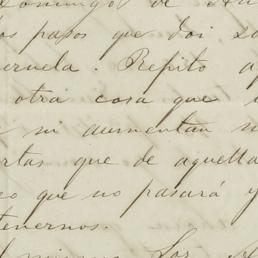 Domingo de
los pasos que doi
escuela. Repito
otra cosa que
ni aumentan
cartas que de aquella
co que no pasará y
tenernos.
mismo Los